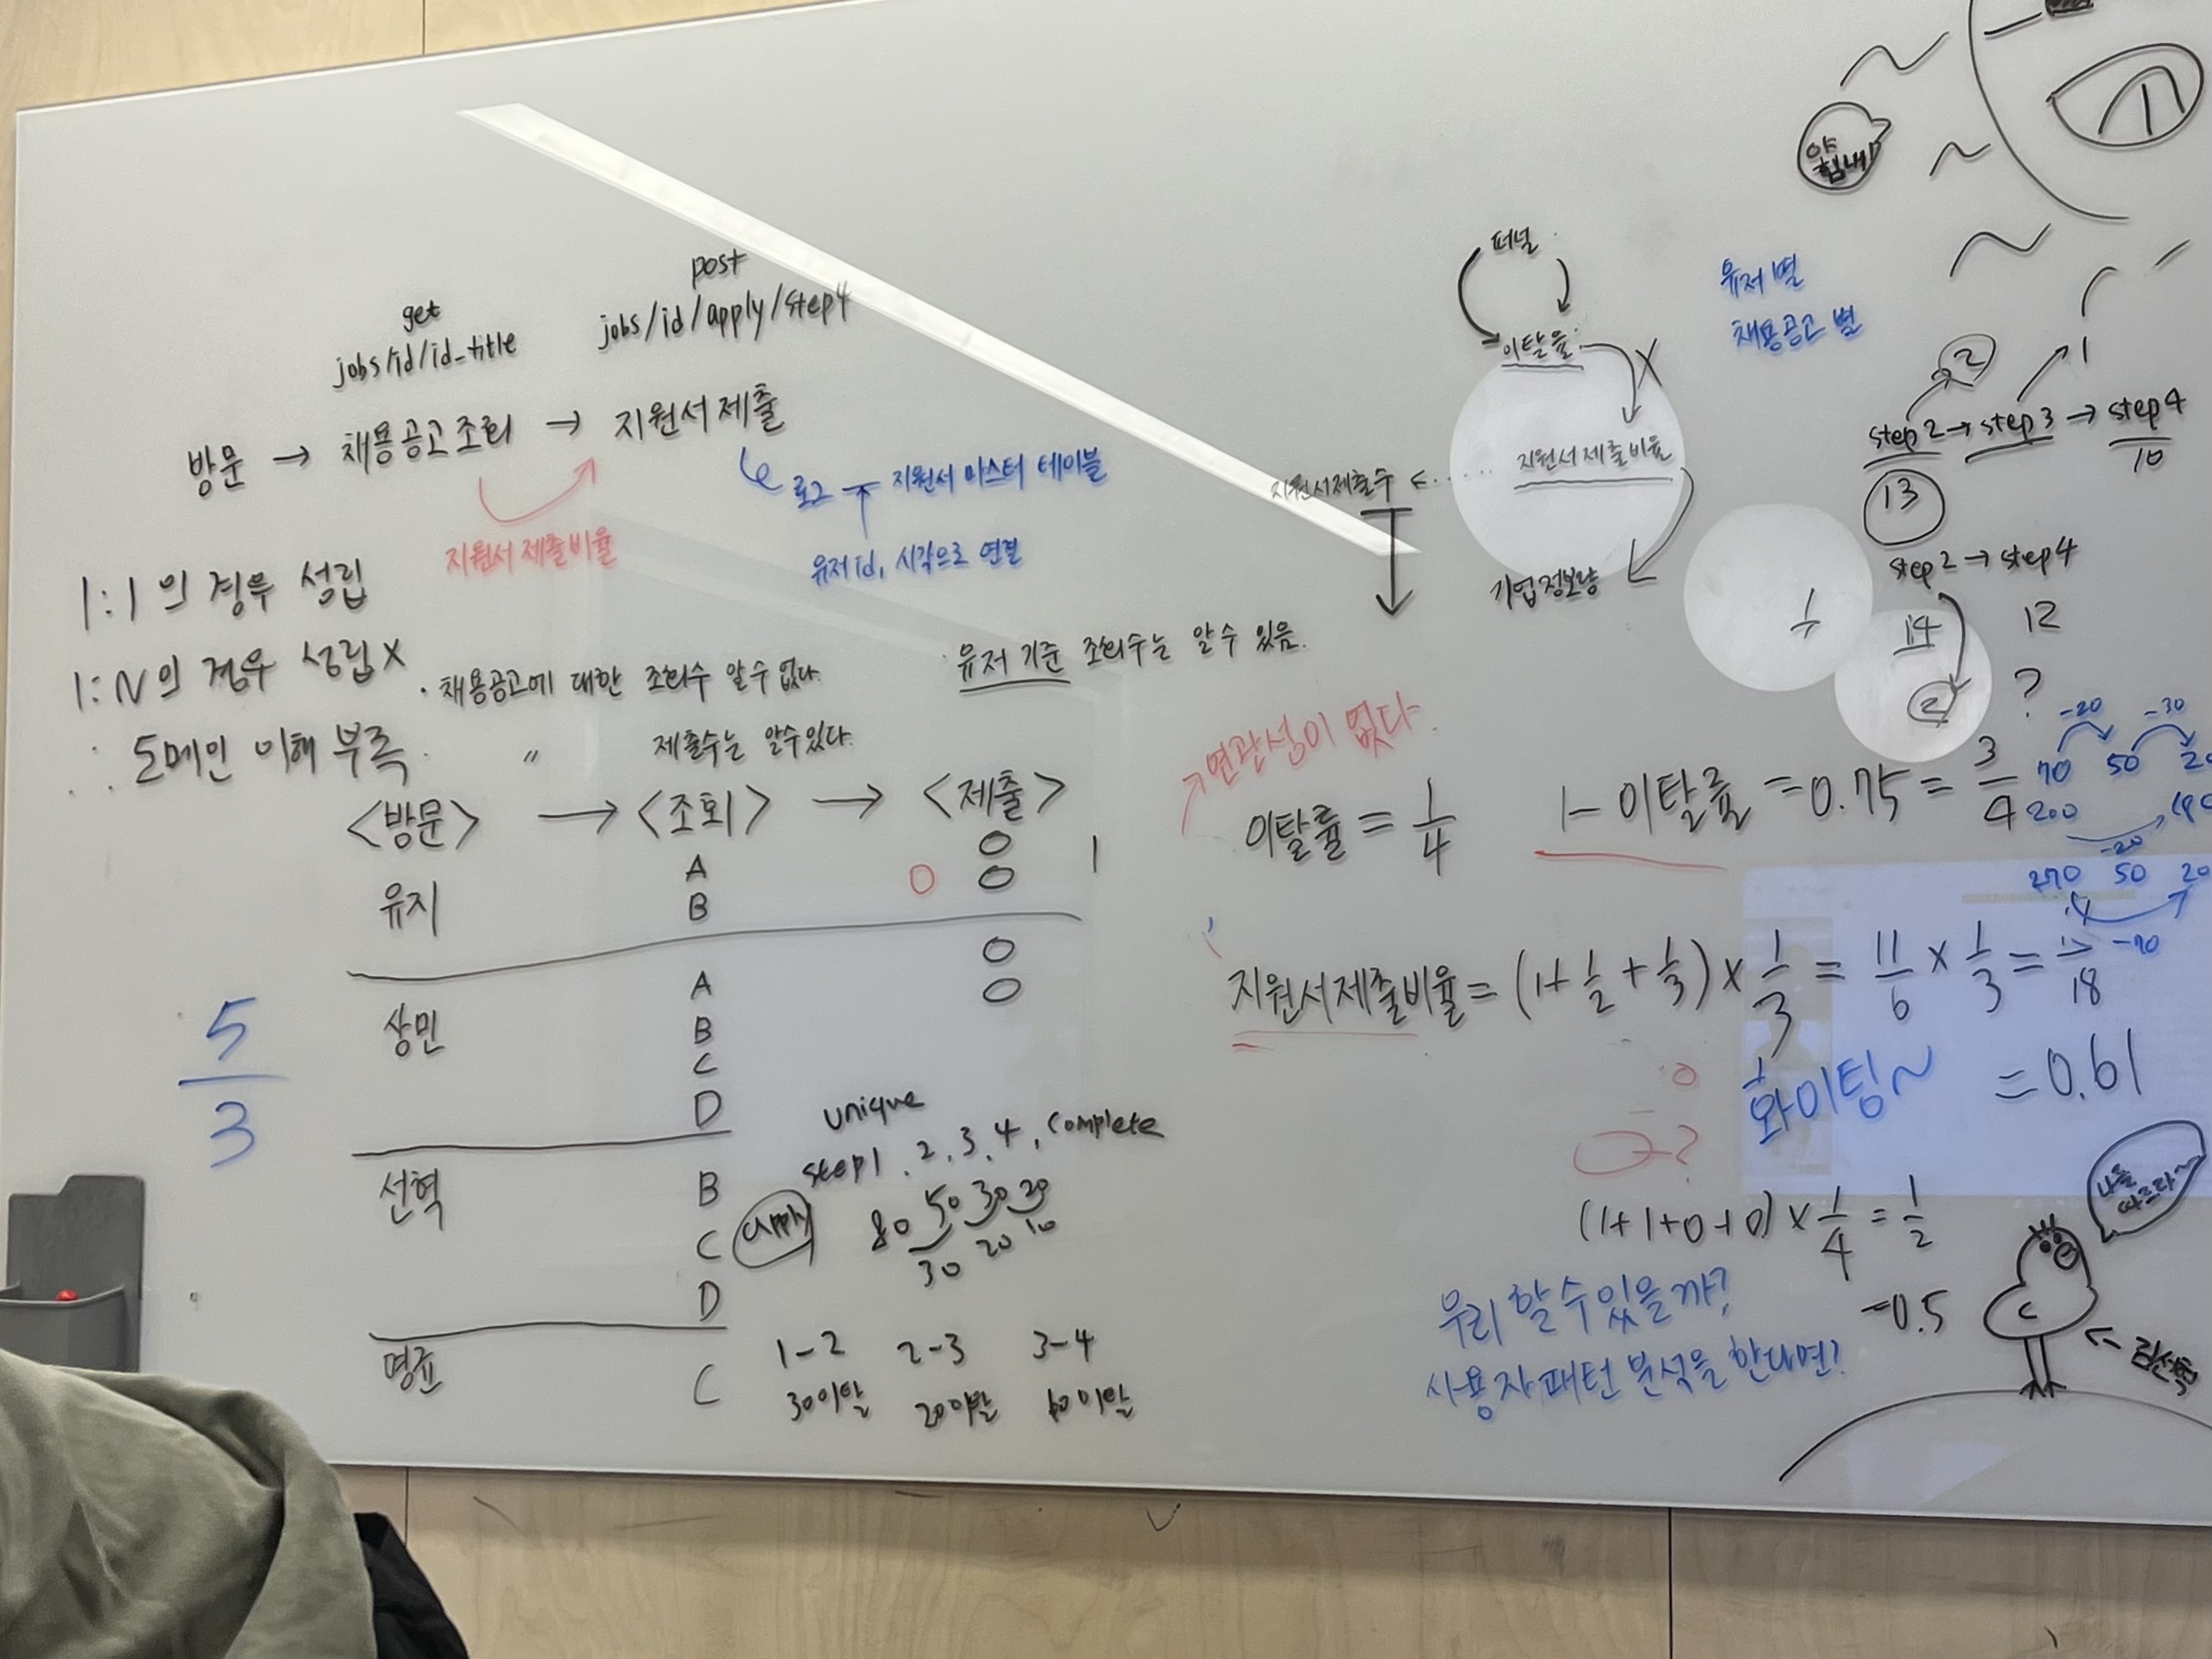 get
jobs/id/id_title
post
jobs/id/apply/step4
방문 → 채용공고 조회 → 지원서 제출
지원서 제출비율
로그 지원서 마스터 테이블
유저id, 시각으로 연결
1:1의 경우 성립
1:N의 경우 성립X
∴ 도메인 이해 부족.
· 채용공고에 대한 조회수 알 수 없다.
" 제출수는 알수있다.
· 유저 기준 조회수는 알 수 있음.
<방문> → <조회> → <제출>
유지
A
B
O
O
O
1
상민
A
B
C
D
O
O
선혁
B
C
D
명균
C
5
3
unique
step1, 2, 3, 4, complete
apply
80 50 30 20
30 20 10
1-2 2-3 3-4
30이탈 20이탈 10이탈
퍼널
이탈율
X
지원서 제출비율
지원서제출수
기업정보량
유저별
채용공고 별
야 힘내!
2
1
step2 → step3 → step4
13
10
step2 → step4
14
12
2
?
연관성이 없다.
이탈률 = 1/4
1 - 이탈률 = 0.75 = 3/4
-20 -30
70 50
200
-20
270 50 20
지원서제출비율 = (1 + 1/2 + 1/3) × 1/3 = 11/6 × 1/3 = 11/18
= 0.61
화이팅~
?
(1+1+0+0) × 1/4 = 1/2
= 0.5
우리 할 수 있을까?
사용자 패턴 분석을 한다면?
나를
따르라~
← 김선혁